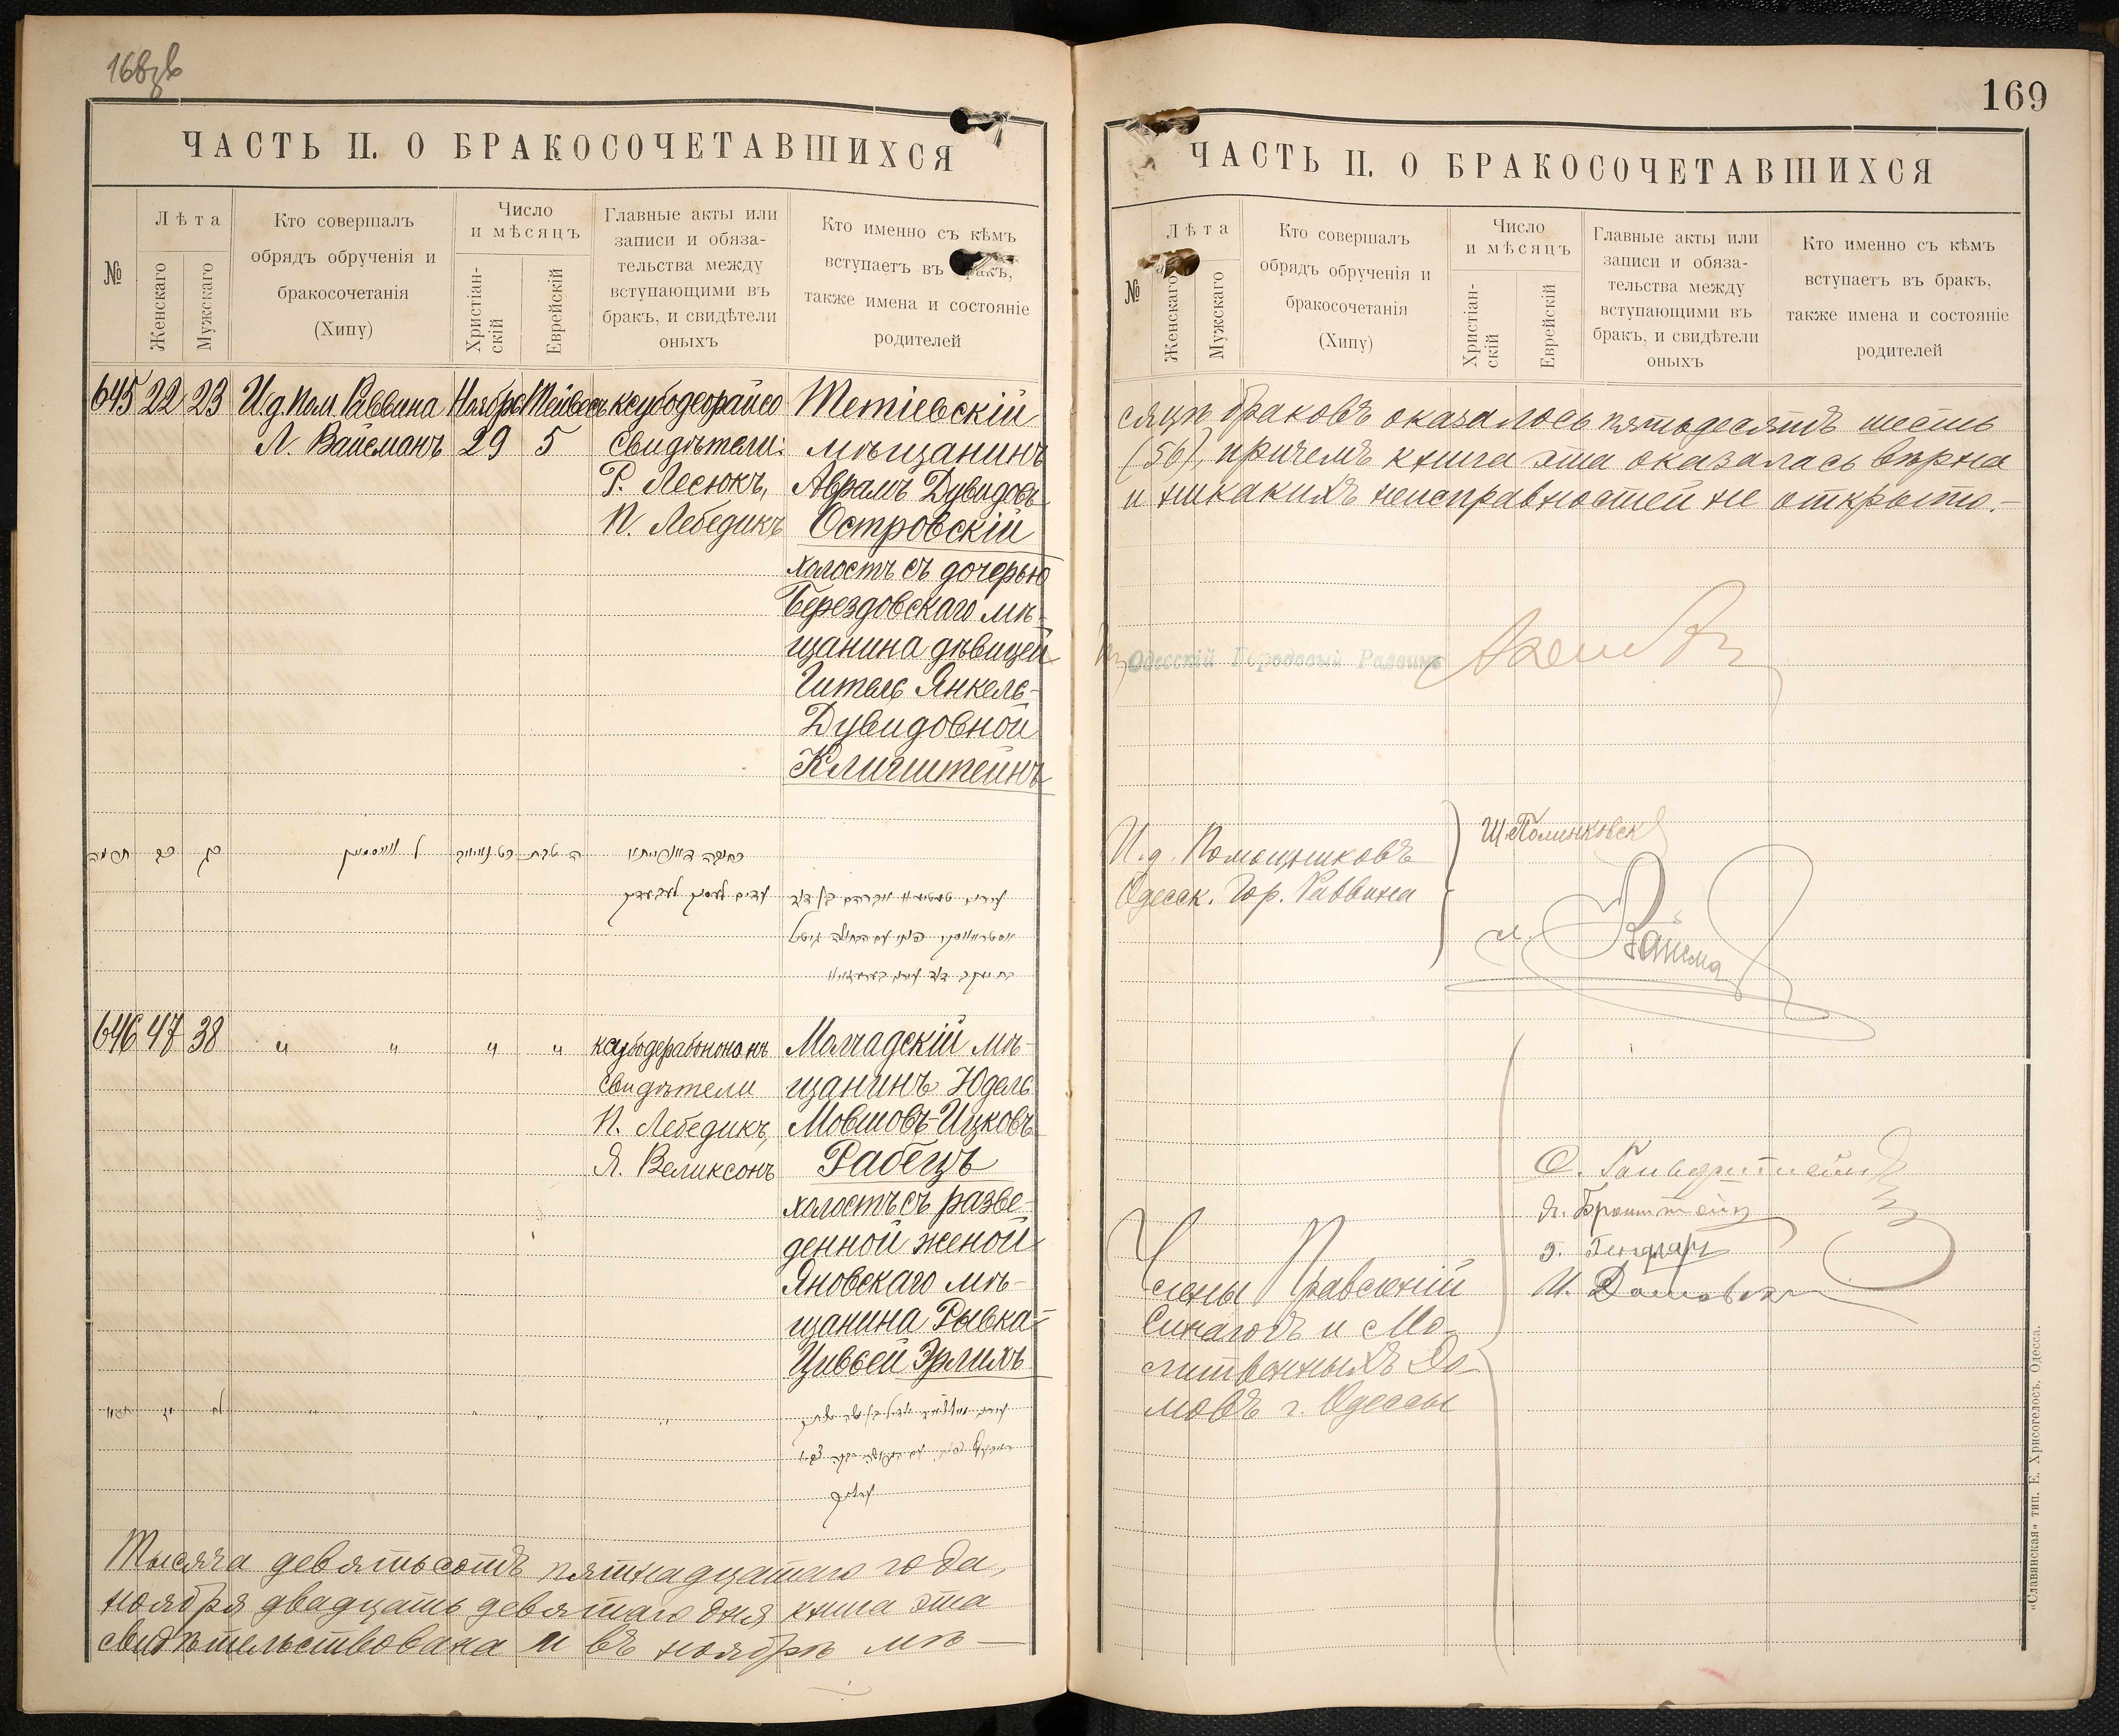 168об
ЧАСТЬ II. О БРАКОСОЧЕТАВШИХСЯ
№
Лѣта
Женскаго
Мужскаго
Кто совершалъ
обрядъ обрученія и
бракосочетанія
(Хипу)
Число
и мѣсяцъ
Христіан-
скій
Еврейскій
Главные акты или
записи и обяза-
тельства между
вступающими въ
бракъ, и свидѣтели
оныхъ
Кто именно съ кѣмъ
вступаетъ въ бракъ,
также имена и состояніе
родителей
645 22 23 И.д. Пом. Раввина Ноябрь Тейвесъ ксубодеорайсо Тетіевскій
Л. Вайсманъ 29 5 свидѣтели: мѣщанинъ
Р. Лесюкъ, Аврамъ Дувидовъ
П. Лебедикъ Островскій
холостъ съ дочерью
Берездовскаго мѣ-
щанина дѣвицей
Гитель Янкель-
Дувидовной
Клигштейнъ
תרמה כב כג ל ווייסמאן כט נוויעמ ה טבת כתובה דאורייתא
646 47 38 " " " " ксубодерабононъ Молчадскій мѣ-
свидѣтели щанинъ Юдель
П. Лебедикъ, Мовшовъ-Ицковъ
Я. Великсонъ Рабецъ
холостъ съ разве-
денной женой
Яновскаго мѣ-
щанина Рывка-
Цивьей Эрлихъ
Тысяча девятьсотъ пятнадцатаго года,
ноября двадцать девятаго дня книга эта
свидѣтельствована и въ ноябрѣ мѣ-
169
ЧАСТЬ II. О БРАКОСОЧЕТАВШИХСЯ
№
Лѣта
Женскаго
Мужскаго
Кто совершалъ
обрядъ обрученія и
бракосочетанія
(Хипу)
Число
и мѣсяцъ
Христіан-
скій
Еврейскій
Главные акты или
записи и обяза-
тельства между
вступающими въ
бракъ, и свидѣтели
оныхъ
Кто именно съ кѣмъ
вступаетъ въ бракъ,
также имена и состояніе
родителей
сяцѣ браковъ оказалось пятьдесятъ шесть
(56), причемъ книга эта оказалась вѣрна
и никакихъ неисправностей не открыто.-
Одесскій Городовой Раввинъ
И.д. Помощниковъ
Одесск. Гор. Раввина
Ш. Полинковск
Л. Вайсма
Члены Правленій
Синагогъ и Мо-
литвенныхъ До-
мовъ г. Одессы
Бронштейн
«Славянская» тип. Е. Хрисогелосъ. Одесса.